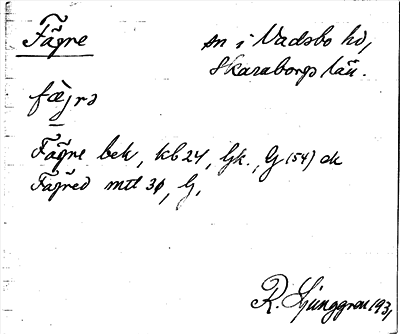 Fägre sn i Vadsbo hd,
Skaraborgs län.
fæ̀jrə
Fägre bek, kb 24, Gk., G (54) ck
Fägred mtl 30, G,
R. Ljunggren 1931